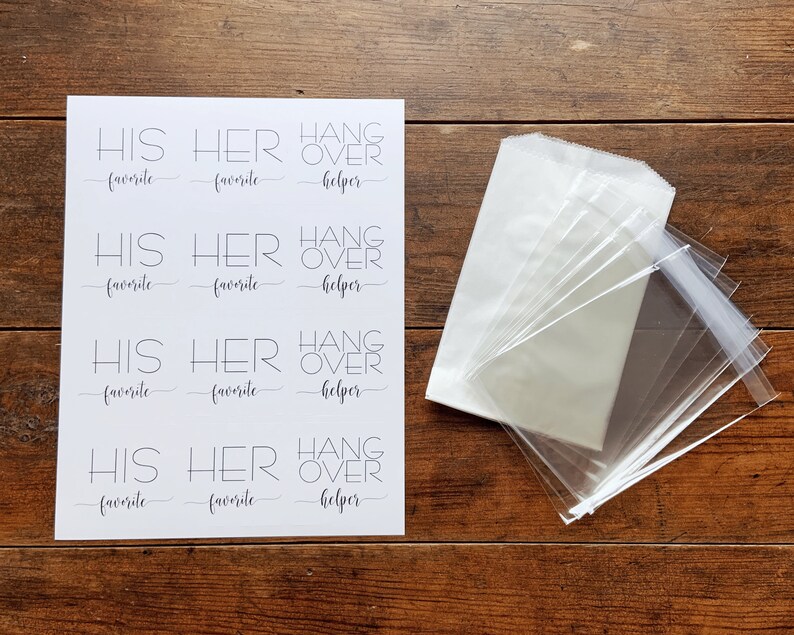 HIS HER HANG
OVER
favorite favorite helper
HIS HER HANG
OVER
favorite favorite helper
HIS HER HANG
OVER
favorite favorite helper
HIS HER HANG
OVER
favorite favorite helper